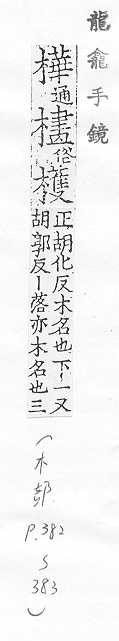 龍龕手鏡
樺通㯉俗檴正胡化反木名也下一又
胡郭反丨落亦木名也三
(木部
P.382
~
383
)